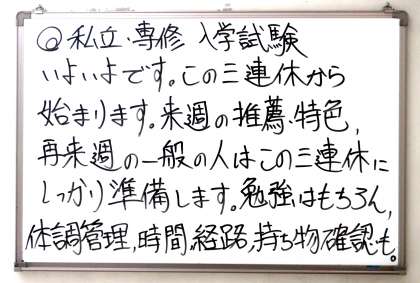 @私立・専修 入学試験
いよいよです。この三連休から
始まります。来週の推薦・特色,
再来週の一般の人はこの三連休に
しっかり準備します。勉強はもちろん,
体調管理,時間,経路,持ち物確認も。